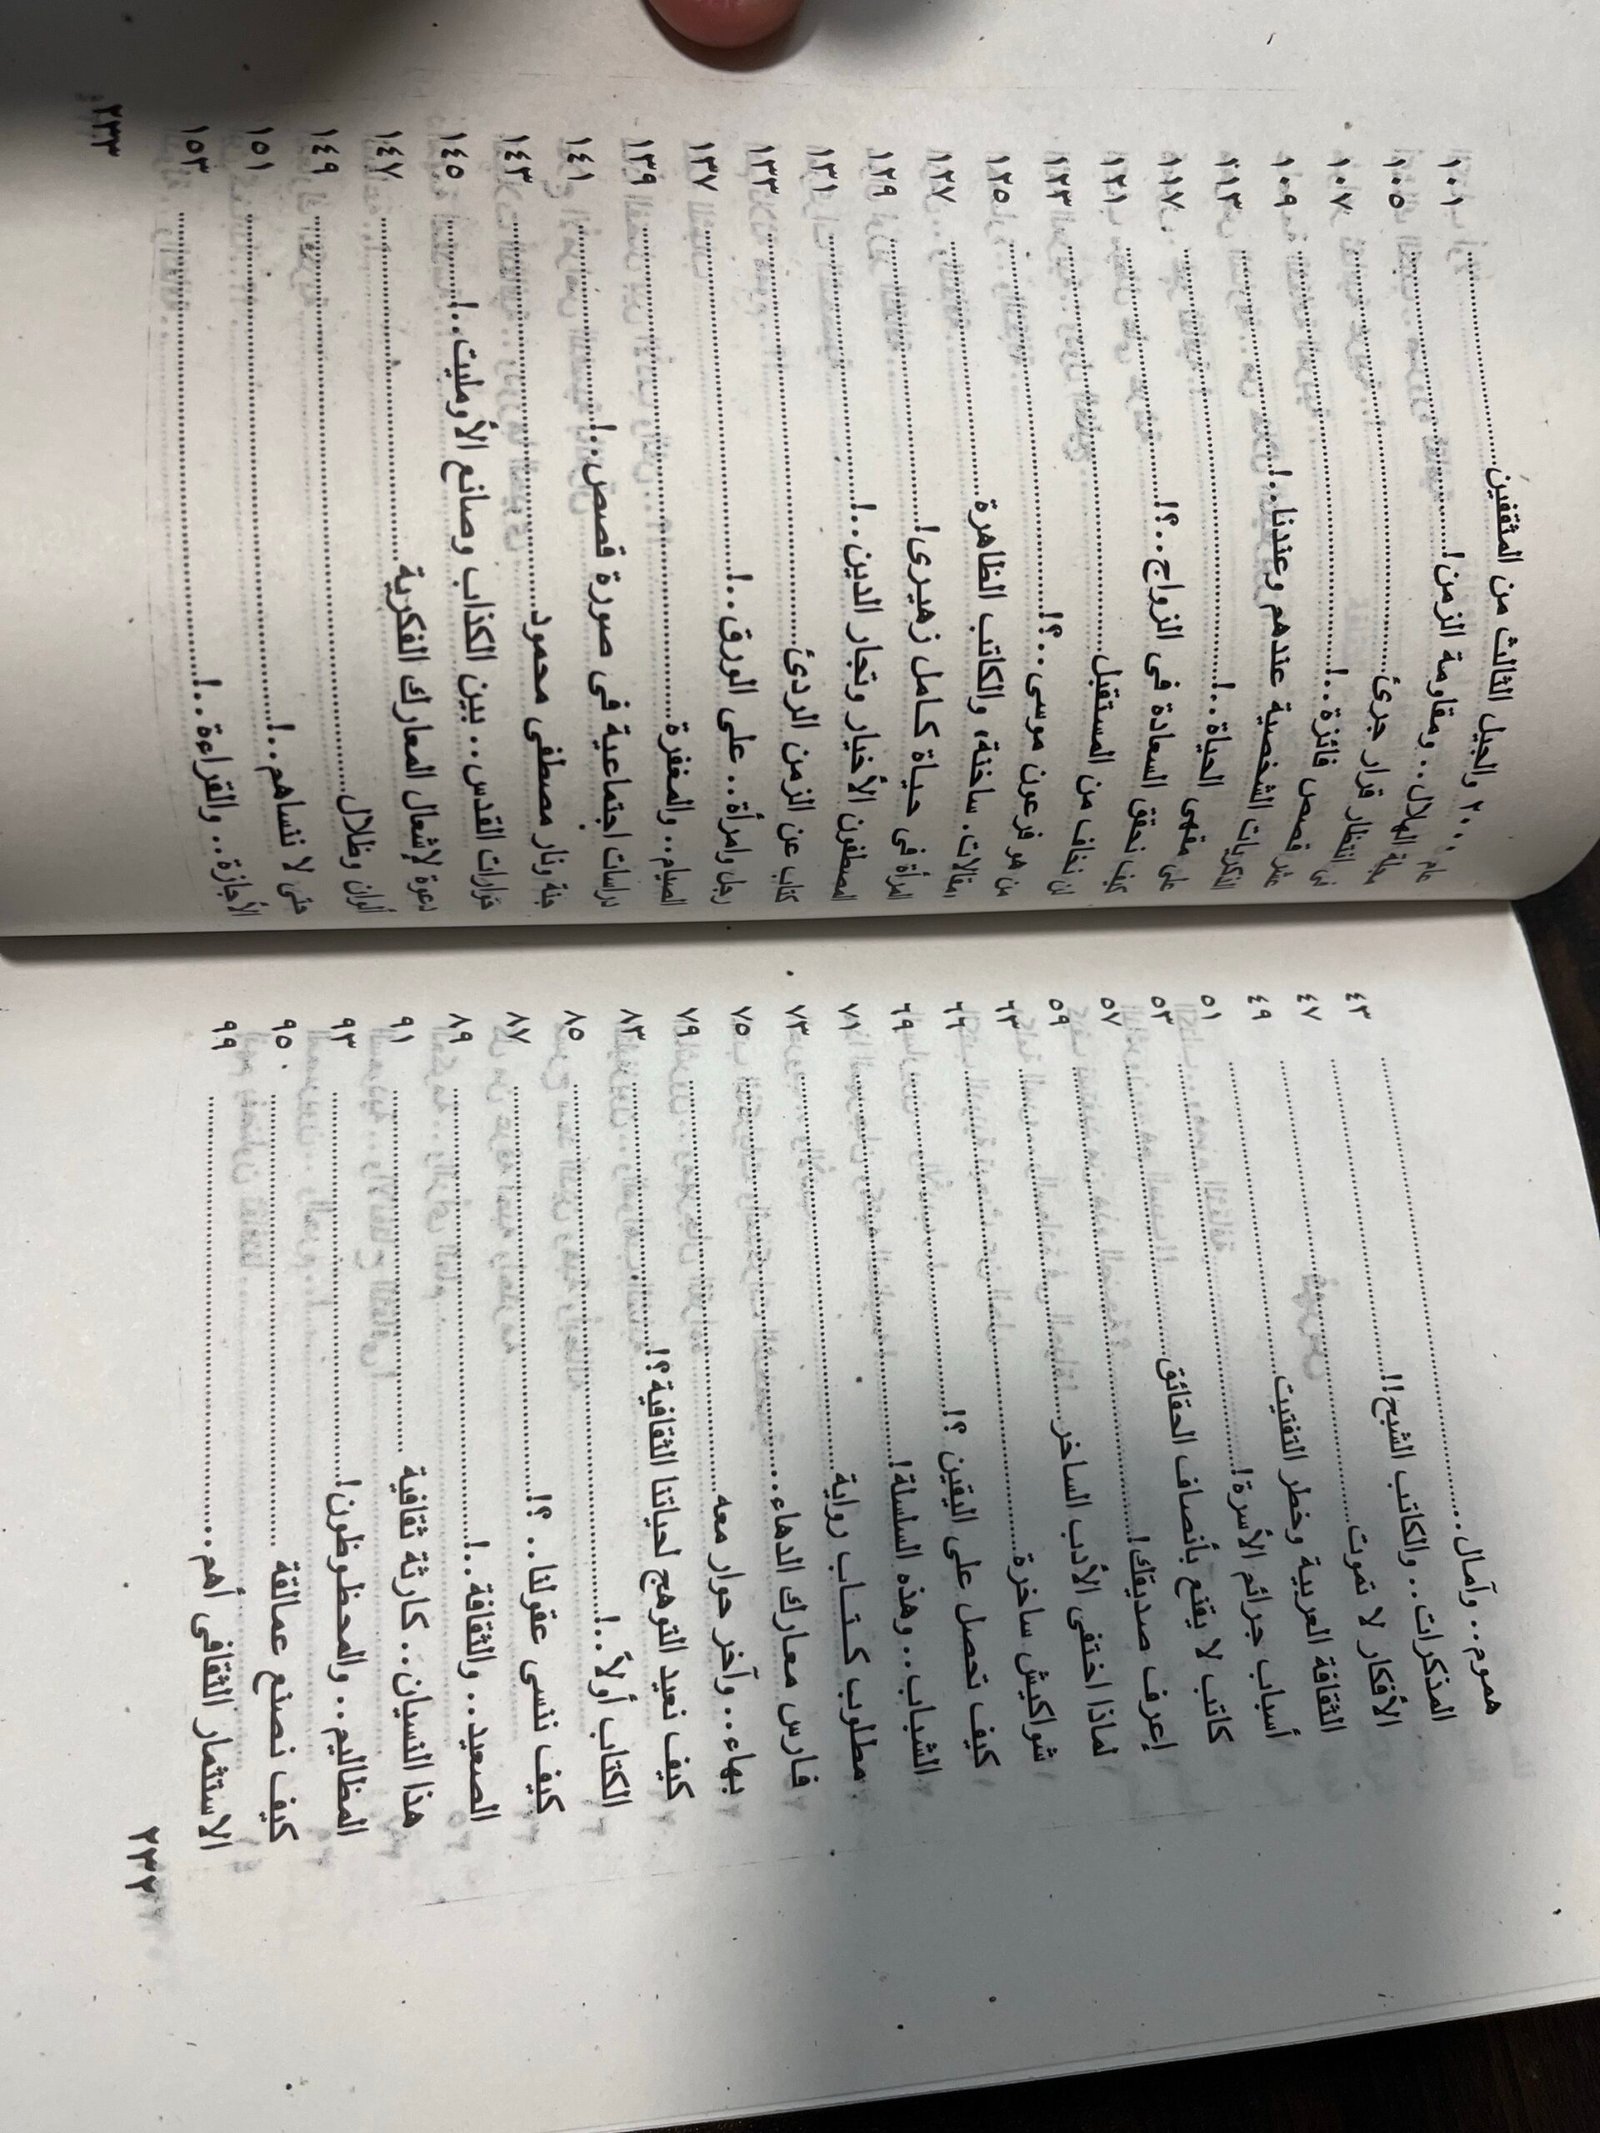 هموم.. وآمال........................ ٤٣
المذكرات.. والكاتب الشبح!!........................ ٤٧
الأفكار لا تموت........................ ٤٩
الثقافة العربية وخطر التفتيت........................ ٥١
أسباب جرائم الأسرة!........................ ٥٣
كاتب لا يقنع بأنصاف الحقائق........................ ٥٧
إعرف صديقك!........................ ٥٩
لماذا اختفى الأدب الساخر........................ ٦٣
شواكيش ساخرة........................ ٦٦
كيف تحصل على اليقين ؟!........................ ٦٩
الشباب.. وهذه السلسلة!........................ ٧١
مطلوب كتاب رواية........................ ٧٣
فارس معارك الدهاء........................ ٧٥
بهاء.. وآخر حوار معه........................ ٧٩
كيف نعيد التوهج لحياتنا الثقافية؟!........................ ٨٣
الكتاب أولاً..!........................ ٨٥
كيف ننسى عقولنا.. ؟!........................ ٨٧
الصعيد.. والثقافة..!........................ ٨٩
هذا النسيان.. كارثة ثقافية........................ ٩١
المظاليم.. والمحظوظون!........................ ٩٣
كيف نصنع عمالقة........................ ٩٥
الاستثمار الثقافى أهم........................ ٩٩
٢٣٢
عام ٢٠٠٠ والجيل الثالث من المثقفين........................ ١٠١
مجلة الهلال.. ومقاومة الزمن!........................ ١٠٥
فى انتظار قرار جرئ........................ ١٠٧
عشر قصص فائزة..!........................ ١٠٩
الذكريات الشخصية عندهم وعندنا..!........................ ١١٣
على مقهى الحياة..!........................ ١١٧
كيف نحقق السعادة فى الزواج..؟!........................ ١٢١
لن نخاف من المستقبل........................ ١٢٣
من هو فرعون موسى..؟!........................ ١٢٥
مقالات. ساخنة، والكاتب الظاهرة........................ ١٢٧
المرأة فى حياة كامل زهيرى!........................ ١٢٩
المصطفون الأخيار وتجار الدين..!........................ ١٣١
كتاب عن الزمن الردئ........................ ١٣٣
رجل وامرأة.. على الورق..!........................ ١٣٧
الصيام.. والمغفرة........................ ١٣٩
دراسات اجتماعية فى صورة قصص..!........................ ١٤١
جنة ونار مصطفى محمود........................ ١٤٣
حوارات القدس.. بين الكذاب وصانع الأومليت..!........................ ١٤٥
دعوة لإشعال المعارك الفكرية........................ ١٤٧
ألوان وظلال........................ ١٤٩
حتى لا ننساهم..!........................ ١٥١
الأجازة.. والقراءة..!........................ ١٥٣
٢٣٣